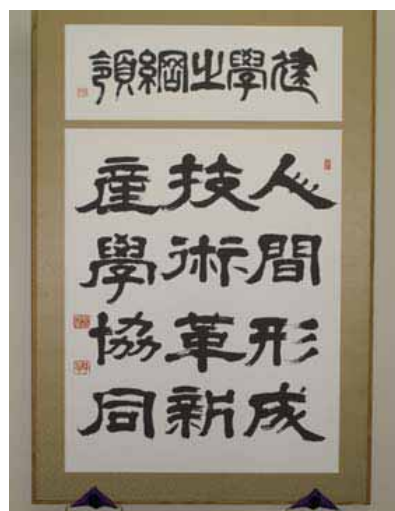 建學之綱領
人間形成
技術革新
産學協同